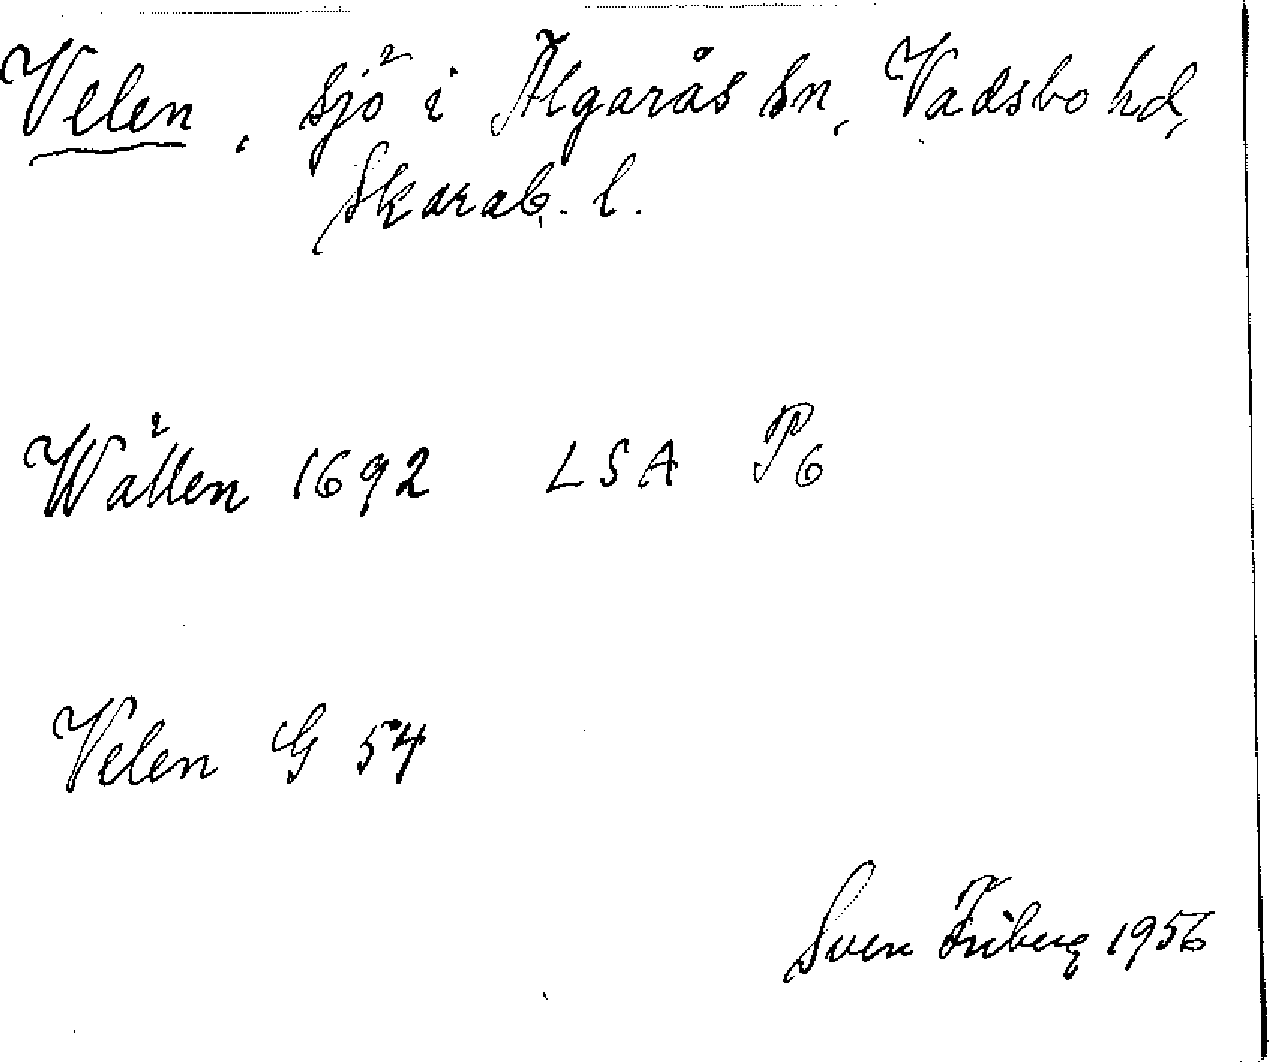 Velen, sjö i Älgarås sn, Vadsbo hd,
Skarab. l.
Wällen 1692 LSA P6
Velen G 54
Sven Friberg 1956